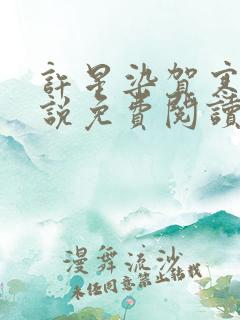 許星染賀寒
說免費閱讀
漫舞流沙
未经同意禁止转载